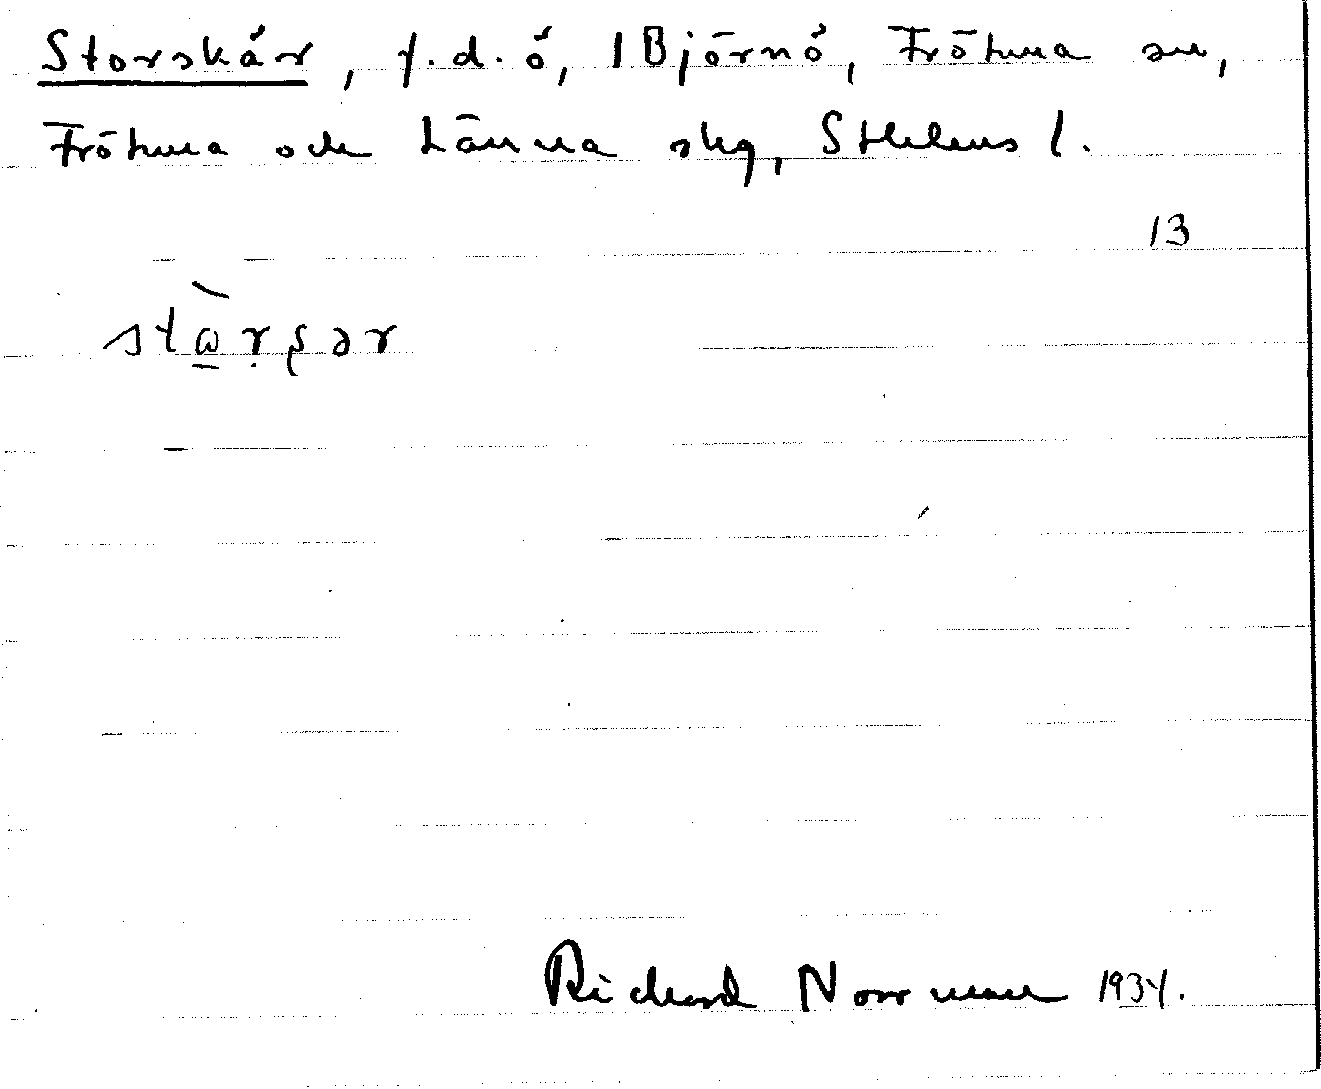 Storskär, f.d. ö, 1 Björnö, Frötuna sn,
Frötuna och Länna skg, Sthlms l.
13
stàrșər
Richard Norrman 1934.